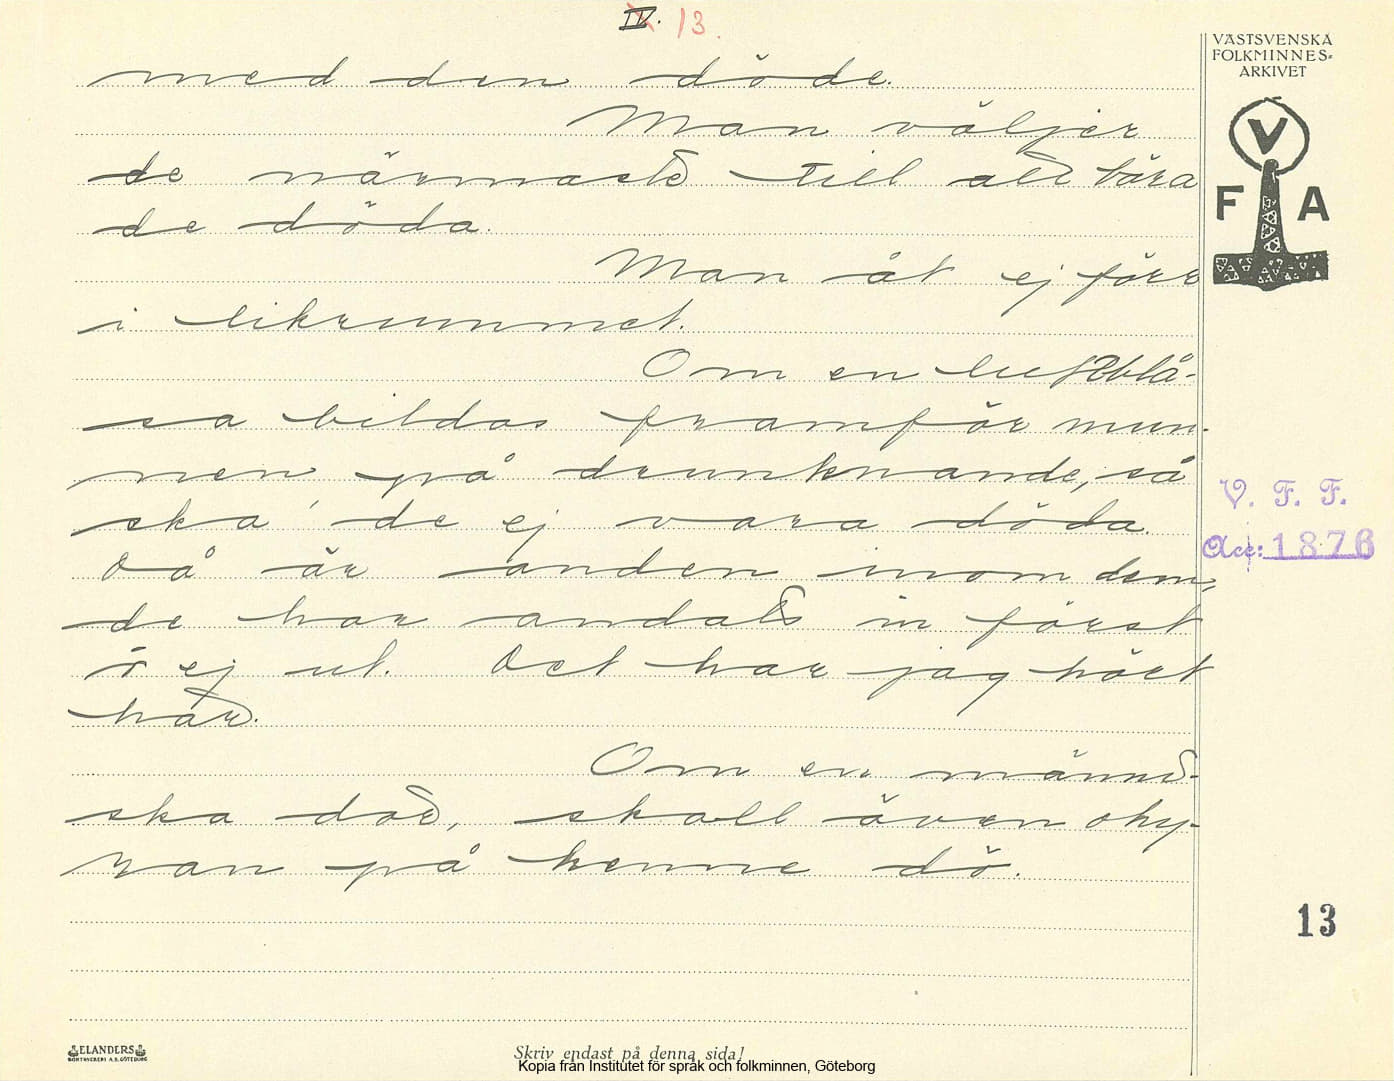 IV. 13.
VÄSTSVENSKA
FOLKMINNES-
ARKIVET
V
F A
med den döde.
Man väljer
de närmaste till att bära
de döda.
Man åt ej förr
i likrummet.
Om en luftblå-
sa bildas framför mun-
nen på drunknande, så
ska' de ej vara döda.
Då är anden inom dem,
de har andats in först
o ej ut. Det har jag hört
här.
Om en männi-
ska dör, skall även ohy-
ran på henne dö.
V. F. F.
Acc: 1876
13
ELANDERS
BOKTRYCKERI A.B. GÖTEBORG
Skriv endast på denna sida!
Kopia från Institutet för språk och folkminnen, Göteborg